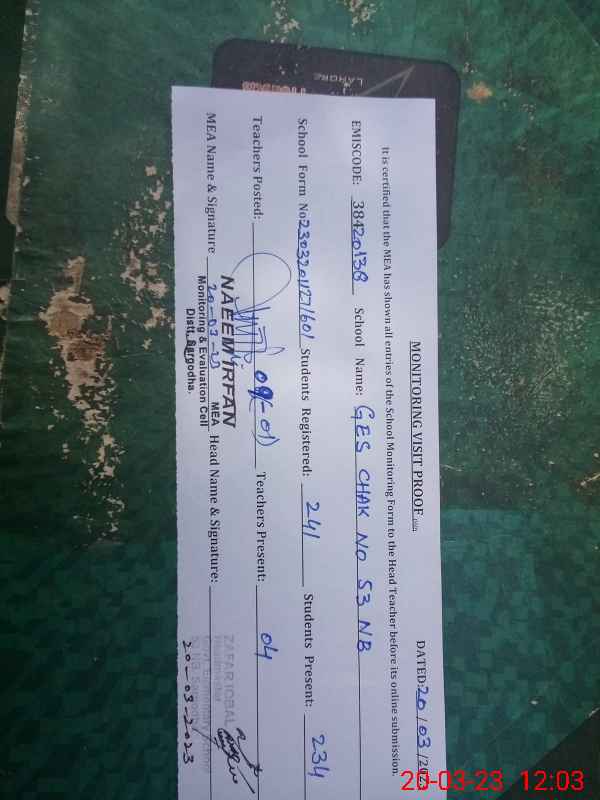 MONITORING VISIT PROOF
DATED: 20/03/202
It is certified that the MEA has shown all entries of the School Monitoring Form to the Head Teacher before its online submission.
EMISCODE: 38420138 School Name: GES CHAK NO 53 NB
School Form No 2303201271601 Students Registered: 241 Students Present: 234
Teachers Posted: 09(-01) Teachers Present: 04
MEA Name & Signature Head Name & Signature:
NAEEM IRFAN
20-03-23 MEA
Monitoring & Evaluation Cell
Distt. Sargodha.
ZAFAR IQBAL
Headmaster
Govt. Elementary School
20-03-2023
LAHORE
20-03-23 12:03